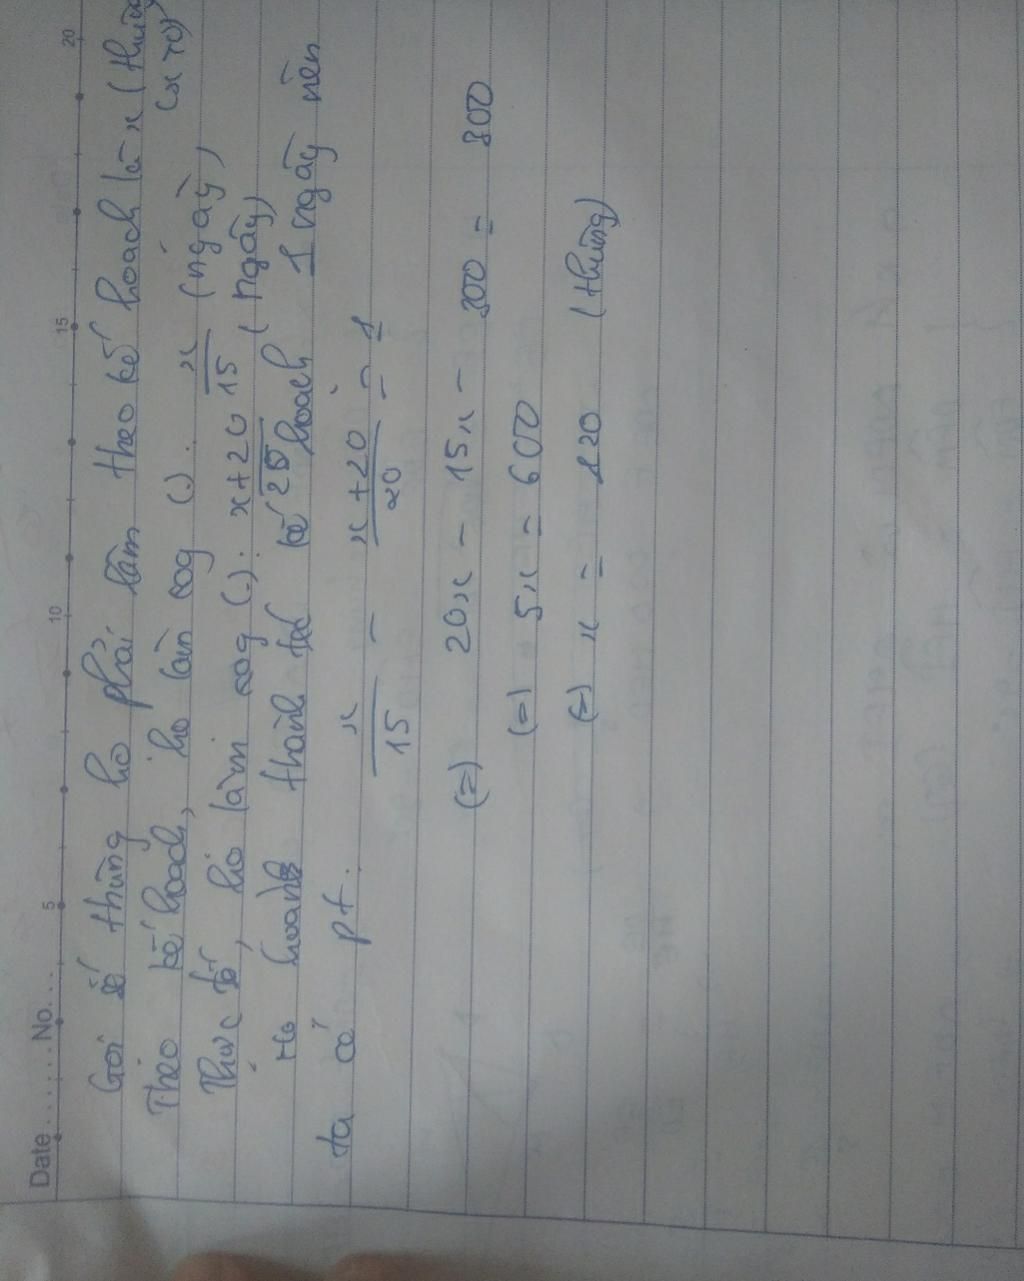 Date ....... No. ...
5 10 15 20
Gọi số thùng họ phải làm theo kế hoạch là x (thùng)
(x > 0)
Theo kế hoạch, họ làm xog (.) : x/15 (ngày)
Thực tế, họ làm xog (.) : x+20/20 (ngày)
Họ hoành thành kế hoạch 1 ngày nên
ta có pt.
x/15 - x+20/20 = 1
(=) 20x - 15x - 300 = 300
(=) 5x = 600
(=) x = 120 (thùng)